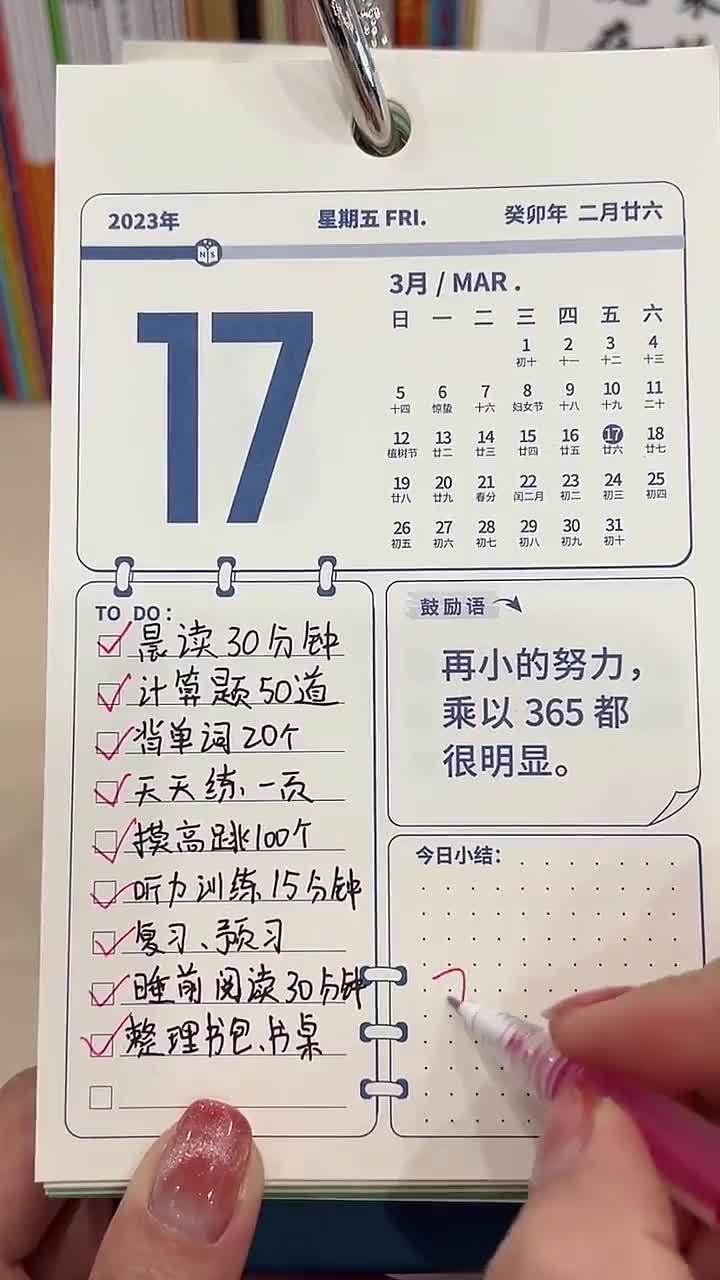 2023年 星期五 FRI. 癸卯年 二月廿六
N S
17
3月 / MAR .
日 一 二 三 四 五 六
1 2 3 4
初十 十一 十二 十三
5 6 7 8 9 10 11
十四 惊蛰 十六 妇女节 十八 十九 二十
12 13 14 15 16 17 18
植树节 廿二 廿三 廿四 廿五 廿六 廿七
19 20 21 22 23 24 25
廿八 廿九 春分 闰二月 初二 初三 初四
26 27 28 29 30 31
初五 初六 初七 初八 初九 初十
TO DO:
晨读30分钟
计算题50道
背单词20个
天天练一页
摸高跳100个
听力训练15分钟
复习、预习
睡前阅读30分钟
整理书包、书桌
鼓励语
再小的努力，
乘以 365 都
很明显。
今日小结：